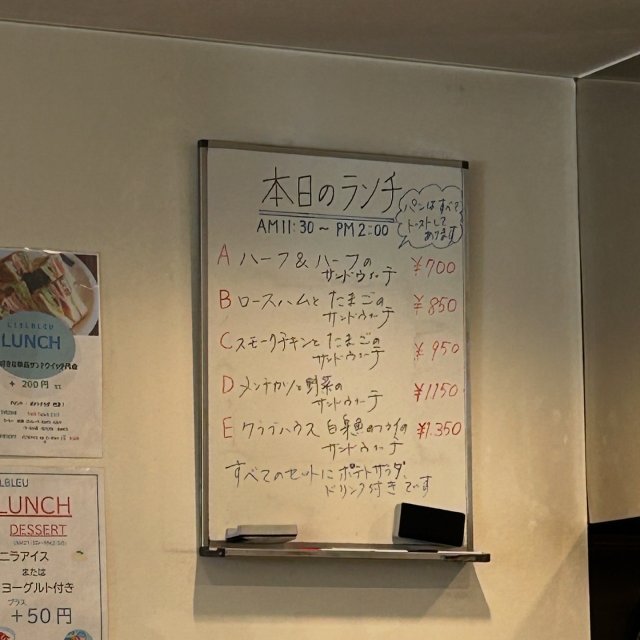 本日のランチ
AM11:30～PM2:00
パンはすべて
トーストして
あります
A ハーフ&ハーフの
サンドウィッチ
¥700
B ロースハムと たまごの
サンドウィッチ
¥850
C スモークチキンと たまごの
サンドウィッチ
¥950
D メンチカツと野菜の
サンドウィッチ
¥1150
E クラブハウス 白身魚のフライの
サンドウィッチ
¥1,350
すべてのセットに ポテトサラダ、
ドリンク付きです
LUNCH
+ 200円
LBLEU
LUNCH
DESSERT
ニラアイス
または
ヨーグルト付き
プラス
+50円